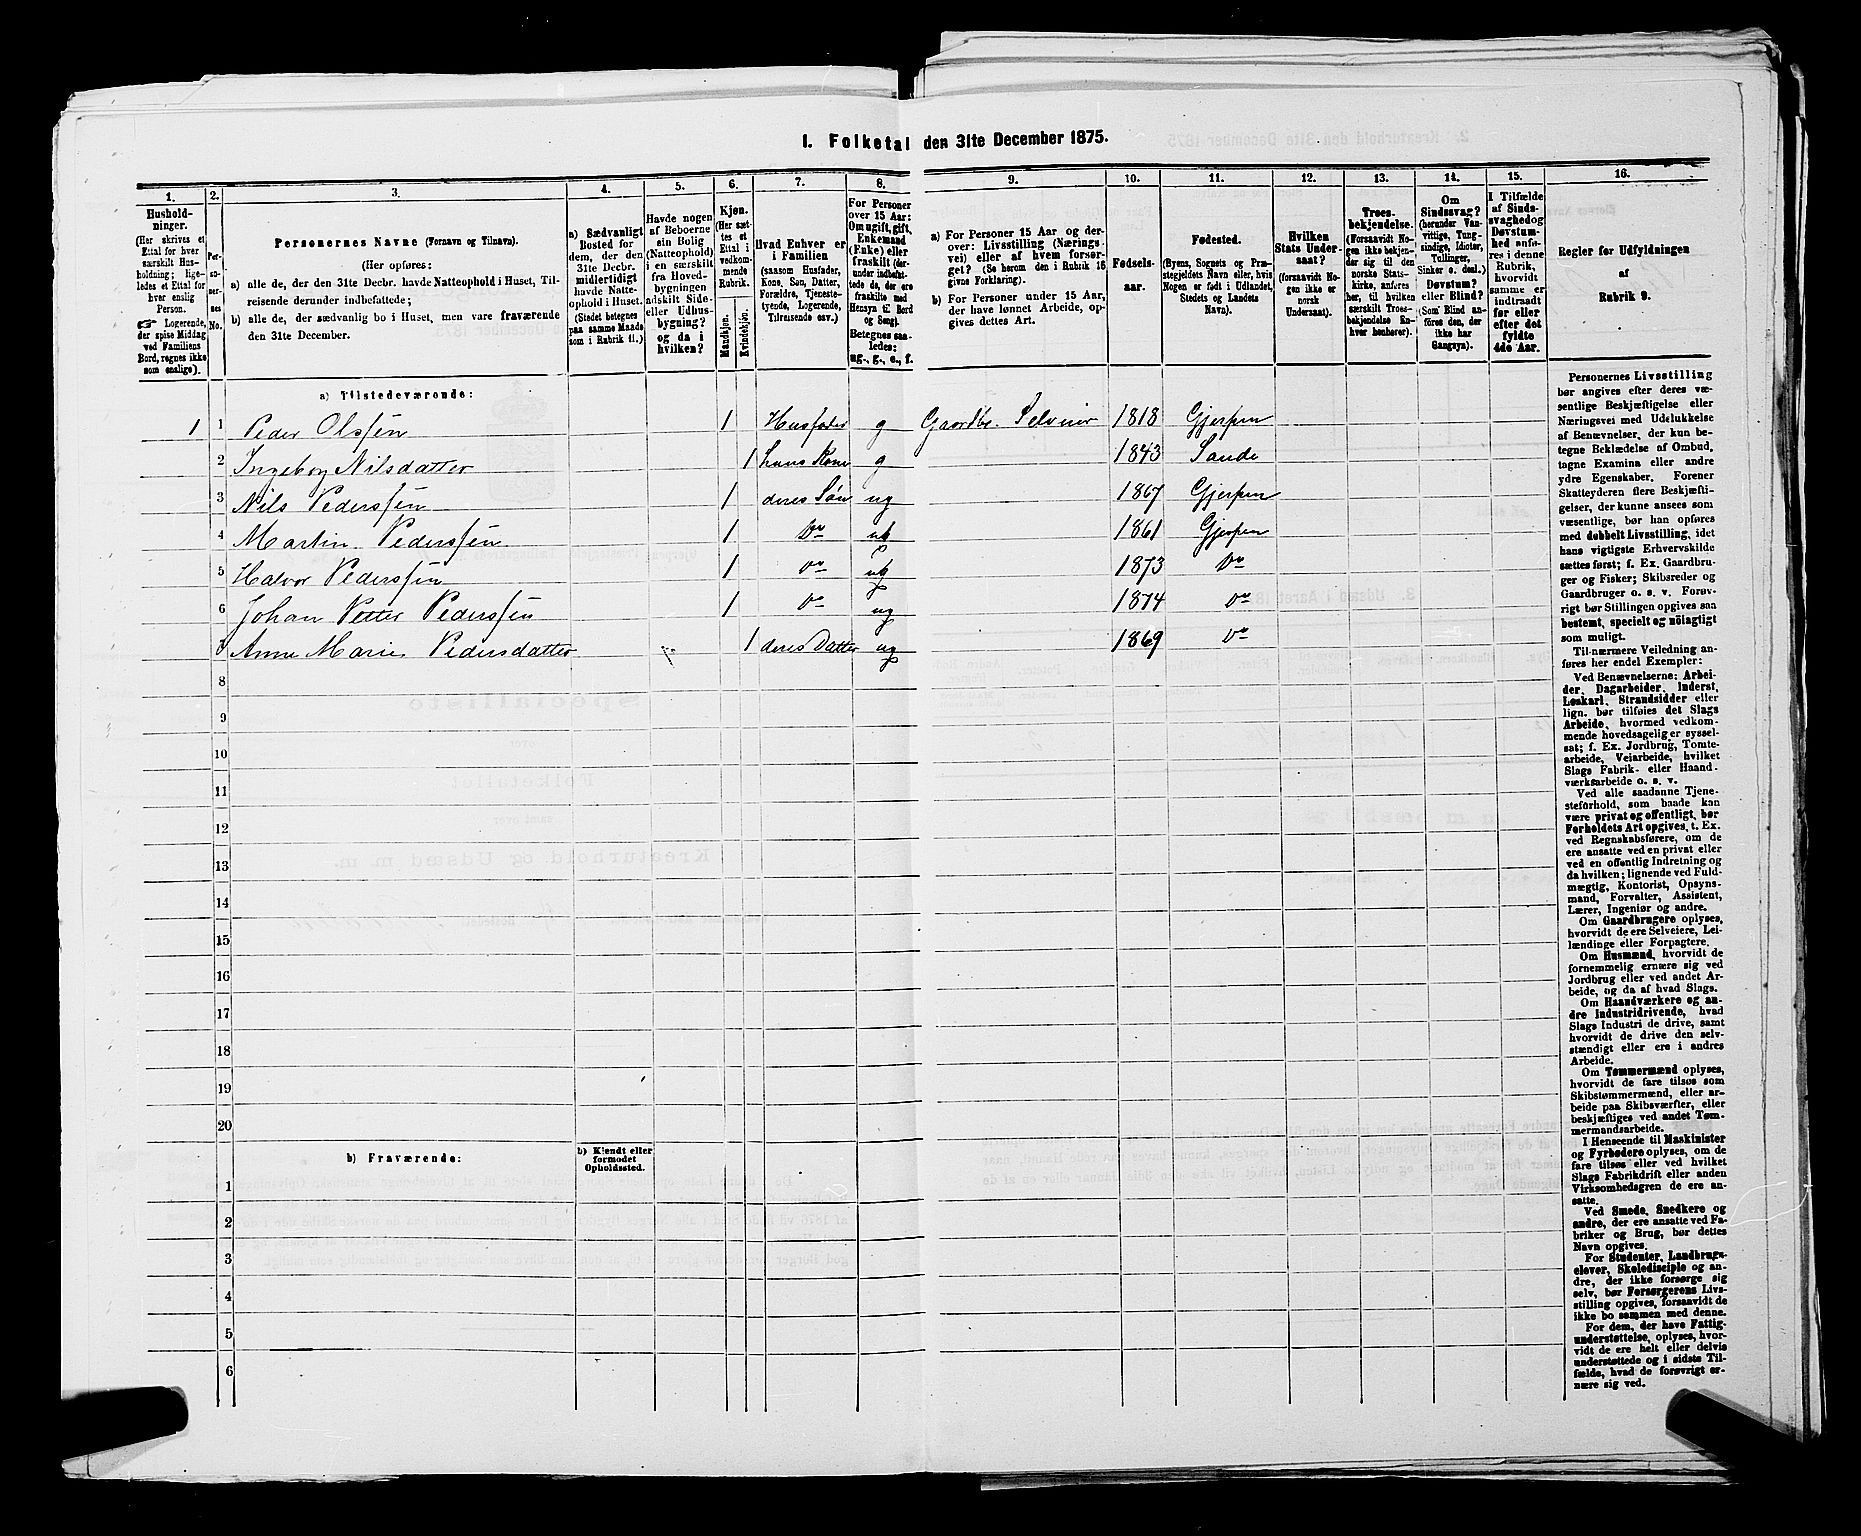 I. Folketal den 31te December 1875.
1. 2. 3. 4. 5. 6. 7. 8. 9. 10. 11. 12. 13. 14. 15. 16.
Husholdninger.
(Her skrives et
Ettal for hver
særskilt Husholdning; ligeledes
et Ettal for
hver enslig
Person.
Logerende,
der spise Middag
ved Familiens
Bord, regnes ikke
som enslige).
Personernes No.
Personernes Navne (Fornavn og Tilnavn).
(Her opføres:
a) alle de, der den 31te Decbr. havde Natteophold i Huset, Tilreisende
derunder indbefattede;
b) alle de, der sædvanlig bo i Huset, men vare fraværende
den 31te December.
a) Sædvanligt
Bosted for
dem, der den
31te Decbr.
midlertidigt
havde Natteophold
i Huset.
(Stedet betegnes
paa samme Maade
som i Rubrik 11.)
Havde nogen
af Beboerne
sin Bolig
(Natteophold)
i en særskilt
fra Hovedbygningen
adskilt Side-
eller Udhusbygning?
og da i
hvilken?
Kjøn.
(Her sættes
et
Ettal i
vedkommende
Rubrik.
Mandkjøn.
Kvindekjøn.
Hvad Enhver er
i Familien
(saasom Husfader,
Kone, Søn, Datter,
Forældre, Tjenestetyende,
Logerende,
Tilreisende osv.)
For Personer
over 15 Aar:
Om ugift, gift,
Enkemand
(Enke) eller
fraskilt (derunder
indbefattede
de, der ere
fraskilte med
Hensyn til Bord
og Seng).
Betegnes saaledes:
ug., g., e., f.
a) For Personer 15 Aar og derover:
Livsstilling (Næringsvei)
eller af hvem forsørget?
(Se herom den i Rubrik 16
givne Forklaring).
b) For Personer under 15 Aar,
der have lønnet Arbeide, opgives
dettes Art.
Fødselsaar.
Fødested.
(Byens, Sognets og Præstegjeldets
Navn eller, hvis
Nogen er født i Udlandet,
Stedets og Landets
Navn).
Hvilken
Stats Undersaat?
(forsaavidt Nogen
ikke er
norsk
Undersaat).
Troesbekjendelse.
(Forsaavidt Nogen
ikke bekjender
sig til den
norske Statskirke,
anføres
her, til hvilken
særskilt Troesbekjendelse
Enhver
henhører).
Om
Sindssvag?
(herunder Vanvittige,
Tungsindige,
Idioter,
Tullinger,
Sinker o. desl.)
Døvstum?
eller Blind?
(Som Blind anføres
den, der
ikke har
Gangsyn).
I Tilfælde
af Sindssvaghed
og
Døvstumhed
anføres
i denne
Rubrik,
hvorvidt
samme er
indtraadt
før eller
efter det
fyldte
4de Aar.
Regler før Udfyldningen
af
Rubrik 9.
a) Tilstedeværende:
1 1 Peder Olssen 1 Husfader g Gaardbr. Selveier 1818 Gjerpen
2 Ingeborg Nilsdatter 1 hans Kone g 1843 Sande
3 Nils Pederssen 1 deres Søn ug 1867 Gjerpen
4 Martin Pederssen 1 Do ug 1861 Gjerpen
5 Halvor Pederssen 1 Do ug 1873 Do
6 Johan Petter Pederssen 1 Do ug 1874 Do
7 Anne Marie Pedersdatter 1 deres Datter ug 1869 Do
8
9
10
11
12
13
14
15
16
17
18
19
20
b) Fraværende:
b) Kjendt eller
formodet
Opholdssted.
1
2
3
4
5
6
Personernes Livsstilling
bør angives efter deres væsentlige
Beskjæftigelse eller
Næringsvei med Udelukkelse
af Benævnelser, der kun betegne
Beklædelse af Ombud,
tagne Examina eller andre
ydre Egenskaber. Forener
Skatteyderen flere Beskjæftigelser,
der kunne ansees som
væsentlige, bør han opføres
med dobbelt Livsstilling, idet
hans vigtigste Erhvervskilde
sættes først; f. Ex. Gaardbruger
og Fisker; Skibsreder og
Gaardbruger o. s. v. Forøvrigt
bør Stillingen opgives saa
bestemt, specielt og nöiagtigt
som muligt.
Til nærmere Veiledning anføres
her endel Exempler:
Ved Benævnelserne: Arbeider,
Dagarbeider, Inderst,
Løskarl, Strandsidder eller
lign. bør tilføies det Slags
Arbeide, hvormed vedkommende
hovedsagelig er sysselsat;
f. Ex. Jordbrug, Tomtearbeide,
Veiarbeide, hvilket
Slags Fabrik- eller Haandværksarbeide
o. s. v.
Ved alle saadanne Tjenesteforhold,
som baade kan
være privat og offentligt, bør
Forholdets Art opgives, t. Ex.
ved Regnskabsførere, om de
ere ansatte ved en privat eller
ved en offentlig Indretning og
da hvilken; lignende ved Fuldmægtig,
Kontorist, Opsynsmand,
Forvalter, Assistent,
Lærer, Ingeniør og andre.
Om Gaardbrugere oplyses,
hvorvidt de ere Selveiere, Leilændinge
eller Forpagtere.
Om Husmænd, hvorvidt de
fornemmelig ernære sig ved
Jordbrug eller ved andet Arbeide,
og da af hvad Slags.
Om Haandværkere og andre
Industridrivende, hvad
Slags Industri de drive, samt
hvorvidt de drive den selvstændigt
eller ere i andres
Arbeide.
Om Tømmermænd oplyses,
hvorvidt de fare tilsøs som
Skibstømmermænd, eller arbeide
paa Skibsværfter, eller
beskjæftiges ved andet Tømmermandsarbeide.
I Henseende til Maskinister
og Fyrbødere oplyses, om de
fare tilsøs eller ved hvilket
Slags Fabrikdrift eller anden
Virksomhedsgren de ere ansatte.
Ved Smede, Snedkere og
andre, der ere ansatte ved Fabriker
og Brug, bør dettes
Navn opgives.
For Studenter, Landbrugselever,
Skoledisciple og andre,
der ikke forsørge sig
selv, bør Forsørgerens Livsstilling
opgives, forsaavidt de
ikke bo sammen med denne.
For dem, der have Fattigunderstøttelse,
oplyses, hvorvidt
de ere helt eller delvis
understøttede og i sidste Tilfælde,
hvad de forøvrigt ernære
sig ved.